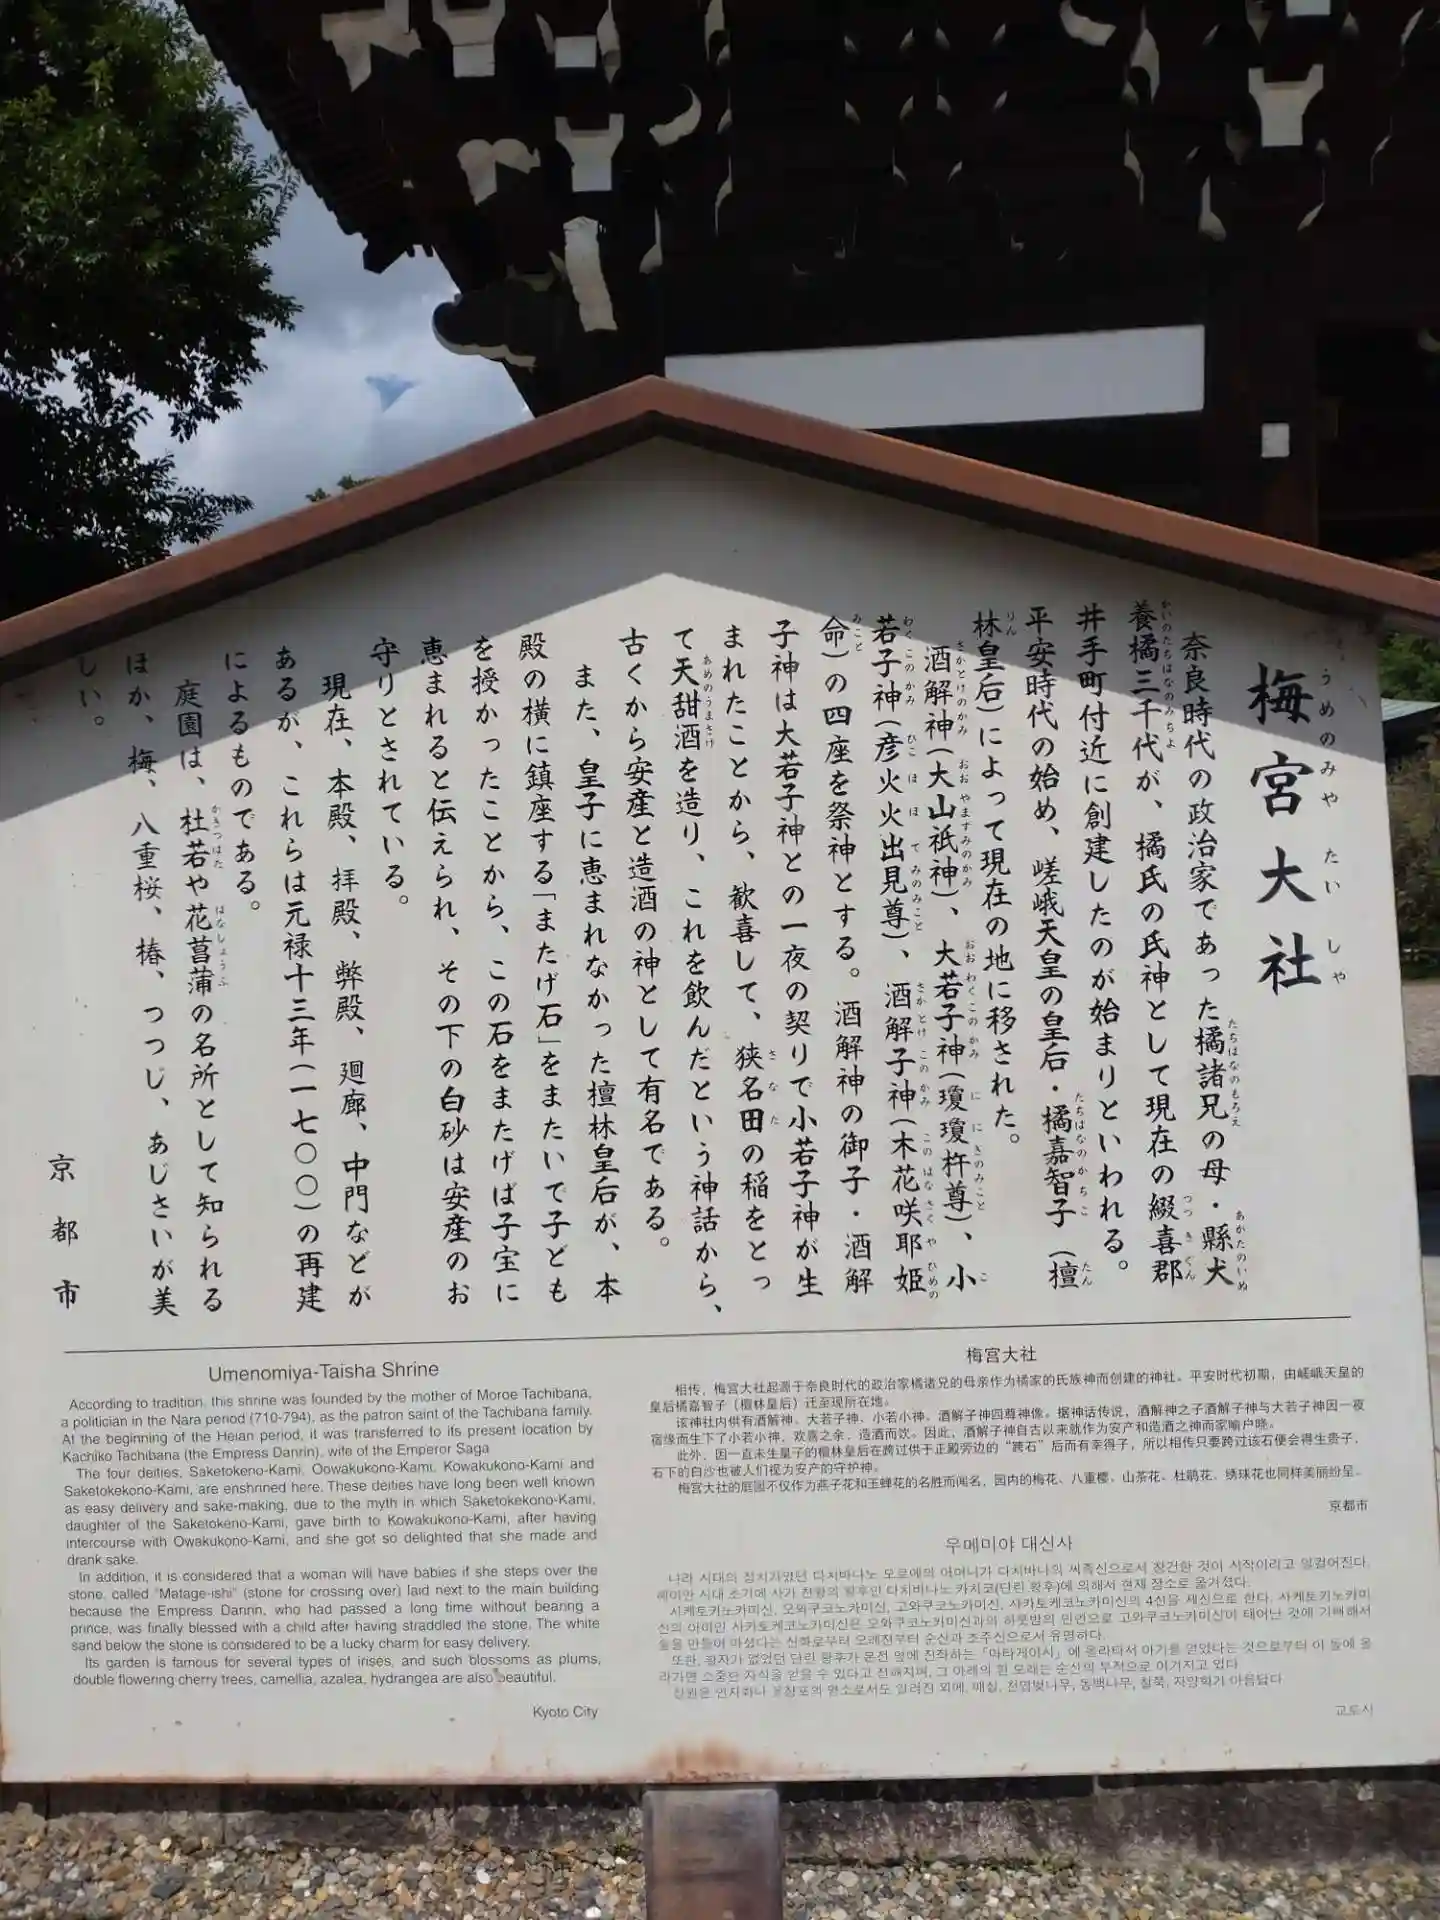 梅宮大社
うめのみや たいしゃ
奈良時代の政治家であった橘諸兄の母・縣犬
養橘三千代が、橘氏の氏神として現在の綴喜郡
井手町付近に創建したのが始まりといわれる。
平安時代の始め、嵯峨天皇の皇后・橘嘉智子(檀
林皇后)によって現在の地に移された。
酒解神(大山祇神)、大若子神(瓊瓊杵尊)、小
若子神(彦火火出見尊)、酒解子神(木花咲耶姫
命)の四座を祭神とする。酒解神の御子・酒解
子神は大若子神との一夜の契りで小若子神が生
まれたことから、歓喜して、狭名田の稲をとっ
て天甜酒を造り、これを飲んだという神話から、
古くから安産と造酒の神として有名である。
また、皇子に恵まれなかった檀林皇后が、本
殿の横に鎮座する「またげ石」をまたいで子ども
を授かったことから、この石をまたげば子宝に
恵まれると伝えられ、その下の白砂は安産のお
守りとされている。
現在、本殿、拝殿、弊殿、廻廊、中門などが
あるが、これらは元禄十三年(一七〇〇)の再建
によるものである。
庭園は、杜若や花菖蒲の名所として知られる
ほか、梅、八重桜、椿、つつじ、あじさいが美
しい。
京都市
Umenomiya-Taisha Shrine
According to tradition, this shrine was founded by the mother of Moroe Tachibana,
a politician in the Nara period (710-794), as the patron saint of the Tachibana family.
At the beginning of the Heian period, it was transferred to its present location by
Kachiko Tachibana (the Empress Danrin), wife of the Emperor Saga
The four deities, Saketokeno-Kami, Oowakukono-Kami, Kowakukono-Kami and
Saketokekono-Kami, are enshrined here. These deities have long been well known
as easy delivery and sake-making, due to the myth in which Saketokekono-Kami,
daughter of the Saketokeno-Kami, gave birth to Kowakukono-Kami, after having
intercourse with Owakukono-Kami, and she got so delighted that she made and
drank sake.
In addition, it is considered that a woman will have babies if she steps over the
stone, called "Matage-ishi" (stone for crossing over) laid next to the main building
because the Empress Danrin, who had passed a long time without bearing a
prince, was finally blessed with a child after having straddled the stone. The white
sand below the stone is considered to be a lucky charm for easy delivery.
Its garden is famous for several types of irises, and such blossoms as plums,
double flowering cherry trees, camellia, azalea, hydrangea are also beautiful.
Kyoto City
梅宫大社
相传，梅宫大社起源于奈良时代的政治家橘诸兄的母亲作为橘家的氏族神而创建的神社。平安时代初期，由嵯峨天皇的
皇后橘嘉智子（檀林皇后）迁至现所在地。
该神社内供有酒解神、大若子神、小若小神、酒解子神四尊神像。据神话传说，酒解神之子酒解子神与大若子神因一夜
宿缘而生下了小若小神，欢喜之余，造酒而饮。因此，酒解子神自古以来就作为安产和造酒之神而家喻户晓。
此外，因一直未生皇子的檀林皇后在跨过供于正殿旁边的“跨石”后而有幸得子，所以相传只要跨过该石便会得生贵子，
石下的白沙也被人们视为安产的守护神。
梅宫大社的庭园不仅作为燕子花和玉蝉花的名胜而闻名，园内的梅花、八重樱、山茶花、杜鹃花、绣球花也同样美丽纷呈。
京都市
우메미야 대신사
나라 시대의 정치가였던 다치바나노 모로에의 어머니가 다치바나의 씨족신으로서 창건한 것이 시작이라고 일컬어진다.
헤이안 시대 초기에 사가 천황의 황후인 다치바나노 카치코(단린 황후)에 의해서 현재 장소로 옮겨졌다.
사케토키노카미신, 오와쿠코노카미신, 고와쿠코노카미신, 사카토케코노카미신의 4신을 제신으로 한다. 사케토키노카미
신의 아이인 사카토케코노카미신은 오와쿠코노카미신과의 하룻밤의 인연으로 고와쿠코노카미신이 태어난 것에 기뻐해서
술을 만들어 마셨다는 신화로부터 오래전부터 순산과 조주신으로서 유명하다.
또한, 황자가 없었던 단린 황후가 본전 옆에 진좌하는 「마타게이시」에 올라타서 아기를 얻었다는 것으로부터 이 돌에 올
라가면 소중한 자식을 얻을 수 있다고 전해지며, 그 아래의 흰 모래는 순산의 부적으로 여겨지고 있다
정원은 꽃창포의 명소로서도 알려진 외에, 매실, 천엽벚나무, 동백나무, 철쭉, 자양화가 아름답다
교토시